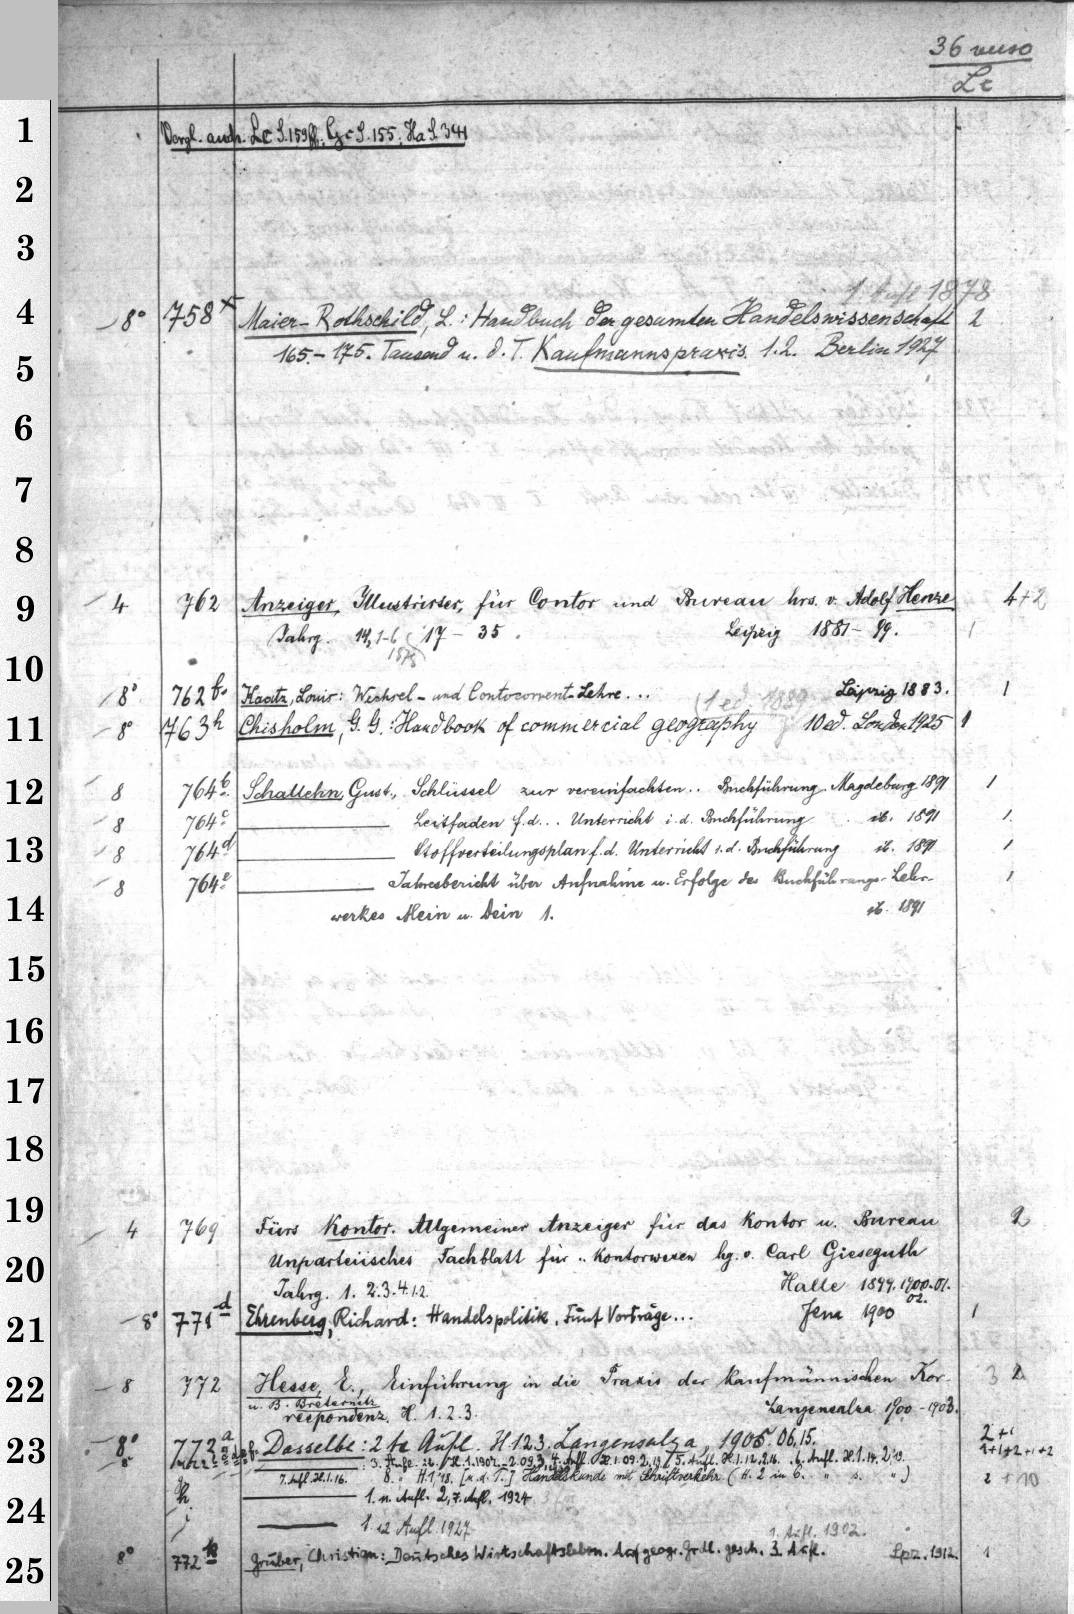 36 verso
Lc
1
Vergl. auch. Lc S. 159ff; Gc S. 155; Ha S. 341
2
3
1 Aufl 1878
4 8° 758 x Maier-Rothschild, L.: Handbuch der gesamten Handelswissenschaft 2
165.-175. Tausend u. d. T. Kaufmannspraxis. 1.2. Berlin 1927
5
6
7
8
9 4 762 Anzeiger, Illustrirter, für Contor und Bureau hrs. v. Adolf Henze 4+2
Jahrg. 14, 1-6 17-35. Leipzig 1881-99. 1
1878
10
8° 762 b. Kautz, Louis: Wechsel- und Contocorrent-Lehre... Leipzig 1883. 1
(1 ed 1889
11 8° 763 h Chisholm, G. G.: Handbook of commercial geography 10 ed. London 1925 1
12 8 764 b. Schallehn, Gust., Schlüssel zur vereinfachten.. Buchführung. Magdeburg 1891 1
8 764 c. Leitfaden f. d... Unterricht i. d. Buchführung ib. 1891 1.
13 8 764 d Stoffverteilungsplan f. d. Unterricht i. d. Buchführung ib. 1891 1
8 764 e. Jahresbericht über Aufnahme u. Erfolge des Buchführungs-Lehr- 1
14 werkes Mein u. Dein 1. ib. 1891
15
16
17
18
19 4 769 Fürs Kontor. Allgemeiner Anzeiger für das Kontor u. Bureau 2
Unparteiisches Fachblatt für.. Kontorwesen hg. v. Carl Gieseguth
20 Jahrg. 1. 2.3.4.1.2. Halle 1899. 1900.01.
02.
21 8° 771 d Ehrenberg, Richard: Handelspolitik. Fünf Vorträge... Jena 1900 1
22 8 772 Hesse, E., Einführung in die Praxis der kaufmännischen Kor- 3 2
u. B. Breternitz
respondenz. H. 1. 2. 3. Langensalza 1900-1903.
23 8° 772 a Dasselbe: 2te Aufl. H 1 2 3. Langensalza, 1905. 06, 15. 2+1
2+1+2+1+2
7. Aufl. H. 1. 16. 8. " H. 1 '18. [u. d. T.] Handelskunde mit Schriftverkehr (H. 2 in 6. " s. " ) 2 1 10
h. 1. n. Aufl. 2, 7. Aufl. 1924
24
i 1. 12 Aufl 1927
1. Aufl. 1902.
25 8° 772 k Gruber, Christian: Deutsches Wirtschaftsleben. Auf geogr. Grdl. gesch. 3. Aufl. Lpz. 1912. 1